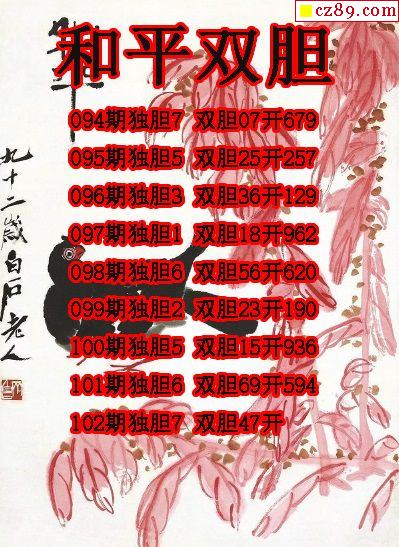 cz89.com
和平
和平双胆
094期独胆7 双胆07开679
095期独胆5 双胆25开257
096期独胆3 双胆36开129
097期独胆1 双胆18开962
098期独胆6 双胆56开620
099期独胆2 双胆23开190
100期独胆5 双胆15开936
101期独胆6 双胆69开594
102期独胆7 双胆47开
九十二岁白石老人